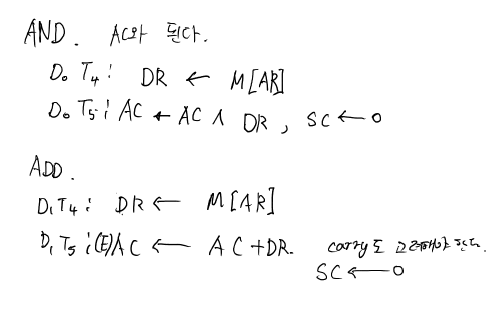 AND. AC와 된다.
D₀ T₄ : DR ← M[AR]
D₀ T₅ : AC ← AC ∧ DR, SC ← 0
ADD.
D₁T₄ : DR ← M[AR]
D₁ T₅ : (E)AC ← AC+DR. carry도 고려해야 한다.
SC ← 0